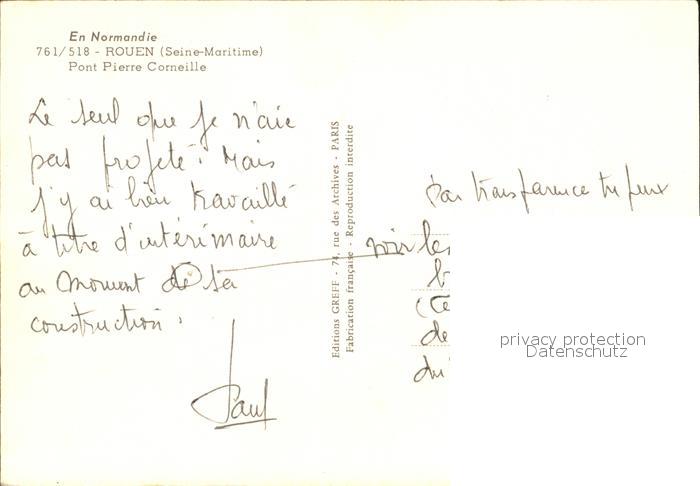 En Normandie
761/518 - ROUEN (Seine-Maritime)
Pont Pierre Corneille
Le seul que je n'aie
pas projeté. Mais
j'y ai bien travaillé
à titre d'intérimaire
au moment de sa
construction.
Paul
Editions GREFF - 74, rue des Archives - PARIS
Fabrication française - Reproduction interdite
Par transparence tu peux
voir les
privacy protection
Datenschutz